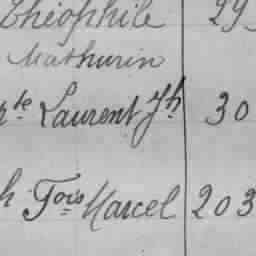 Théophile 29
Mathurin
te Laurent Jh 30
h Fois Marcel 203